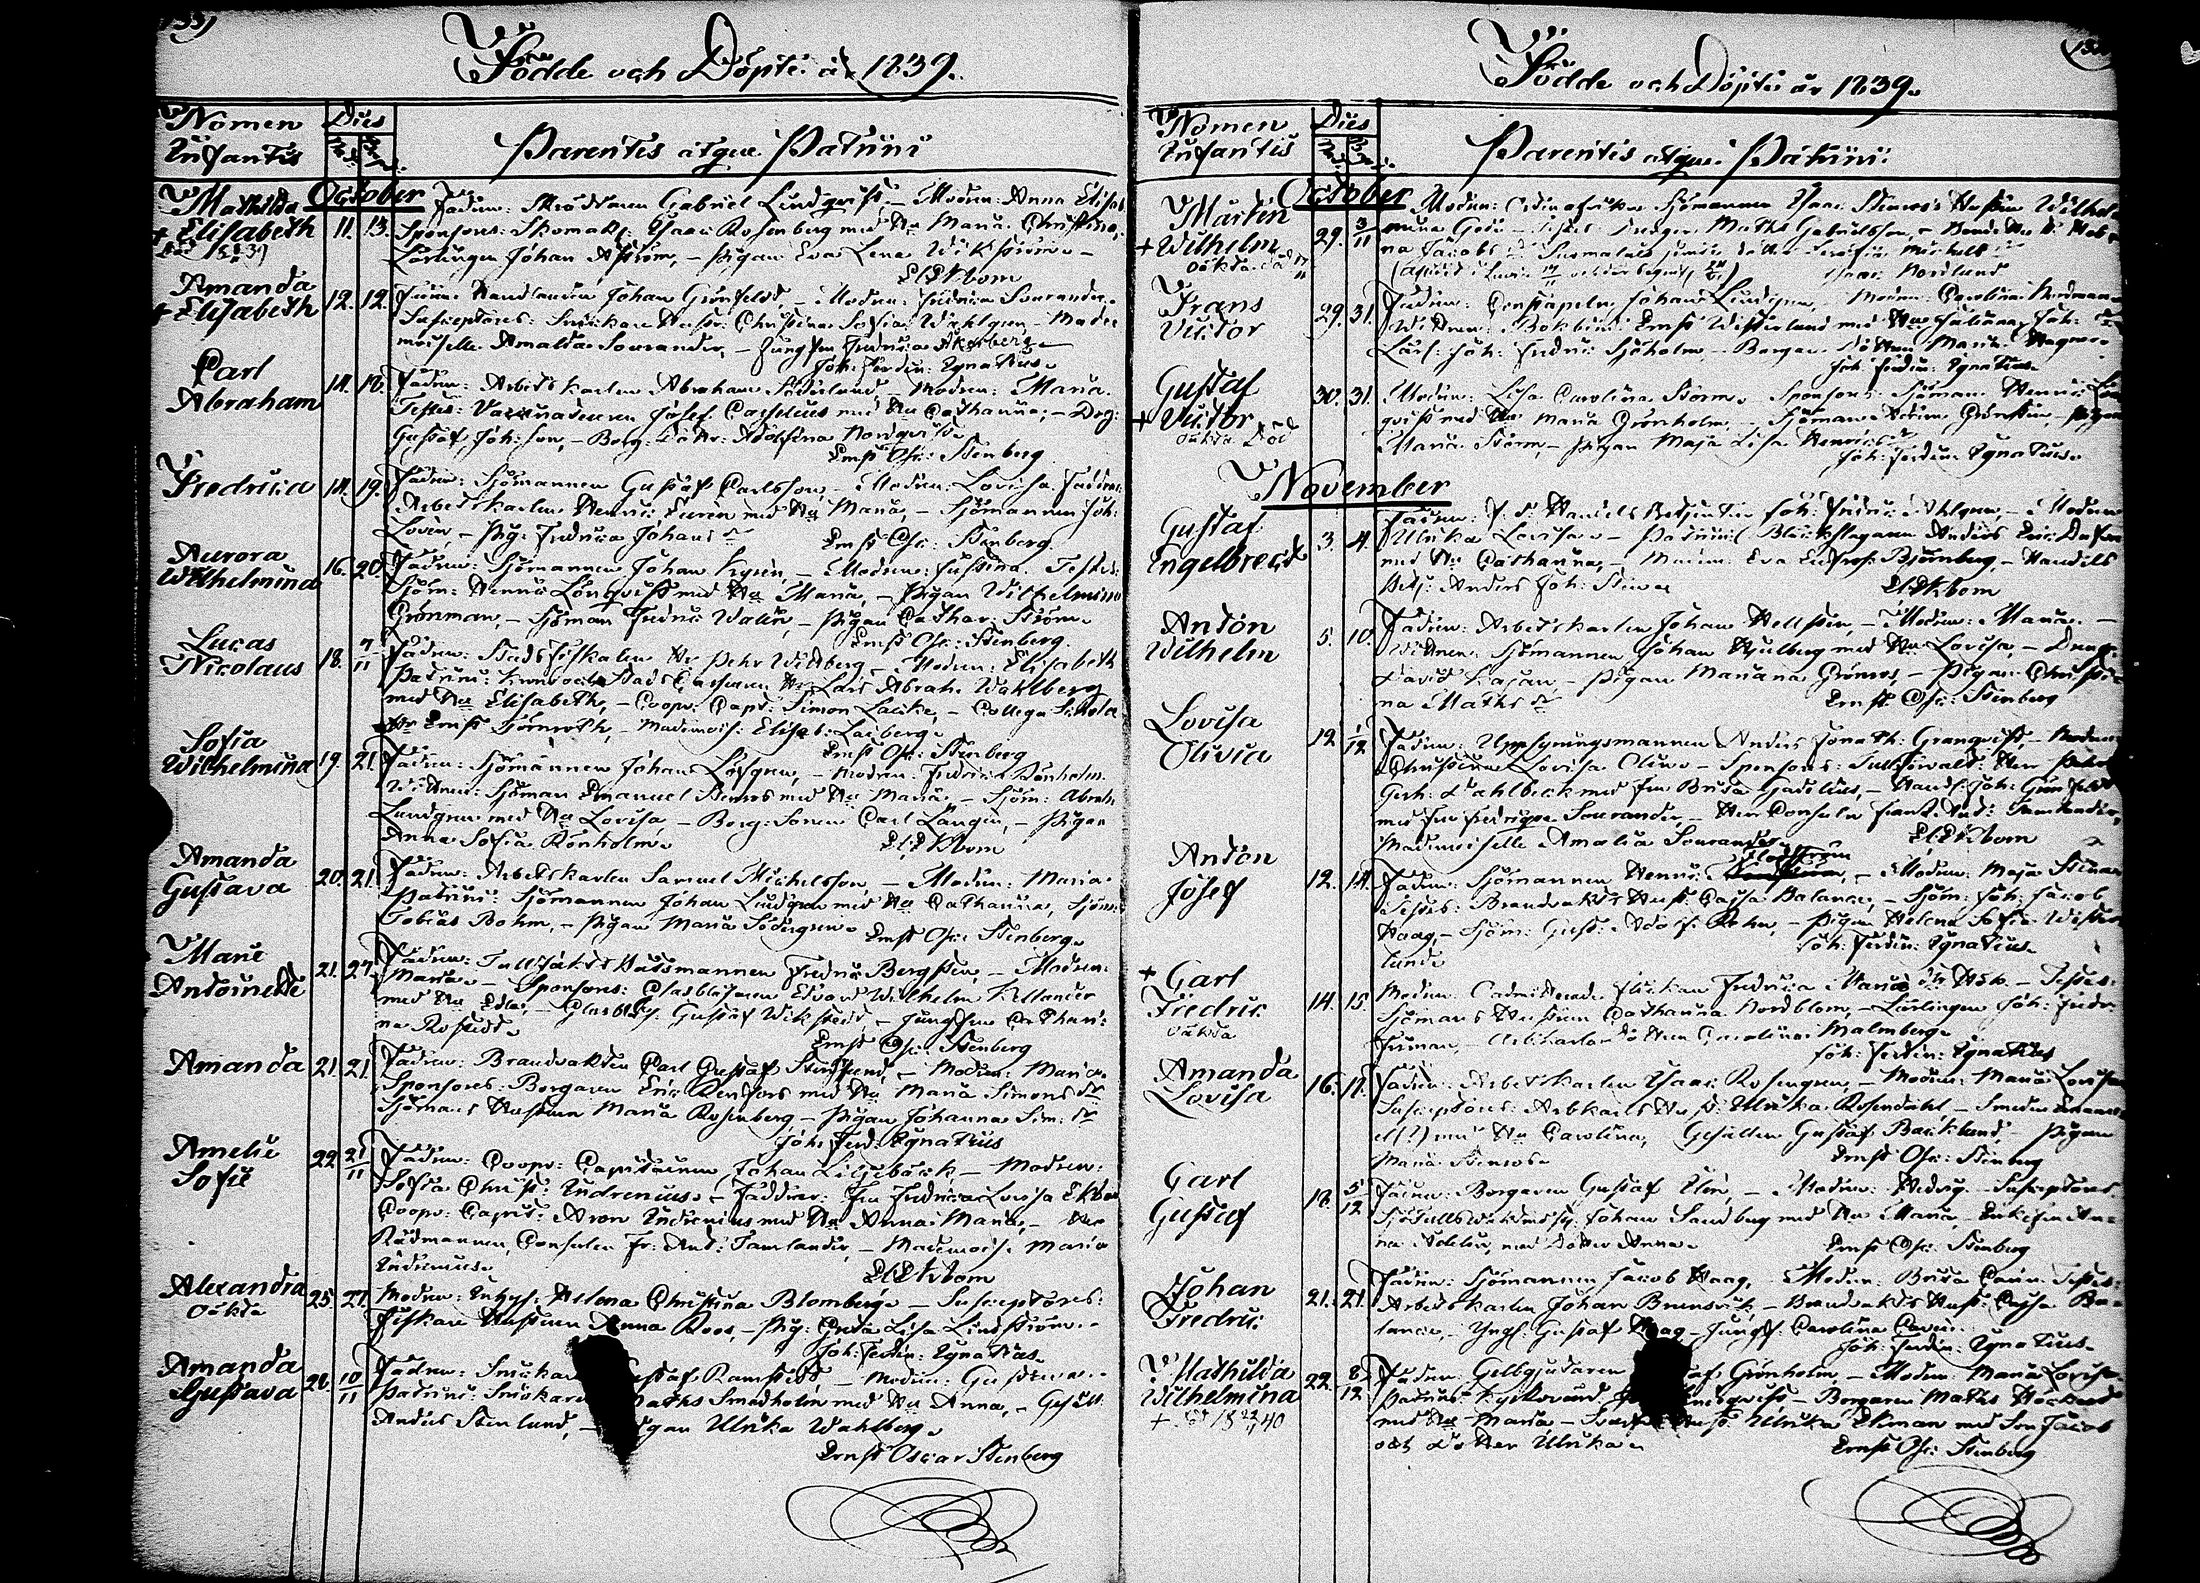 Födde och Döpte år 1839.
Nomen Infantis
Dies
Parentes atque Patrini
October
Mathilda + Elisabeth
11. 13.
Fadren: Skräddaren Gabriel Lindqvist. – Modren: Anna Elisab.
Sponsores: Skomak: Isaac Rosenberg med Hu Maria Christina,
Lärlingen Johan Aström, – Pigan Eva Lena Wikström. –
El. Ekbom
Amanda + Elisabeth
12. 12.
Johan Grönfeldt, – Modren: Fredrica Sourander.
Susceptores: Snickare Hustr: Christina Sofia Wahlgren – Made
moiselle Amalia Sourander, – Jungfru Fredrica Åkerberg
Joh: Ferdin: Ignatius.
Carl Abraham
14. 18.
Fadren: Arbets karlen Abraham Söderlund, Modren: Maria.
Testes: Vaccinateuren Josef Caselius med Hu Catharina, – Dreg:
Gustaf Joh:son, – Borg: Dottr: Adolfina Nordqvist.
Ernst Osc: Stenberg
Fredrica
14. 19.
Fadren: Sjömannen Gustaf Carlsson, – Modren: Lovisa. Faddrar:
Arbetskarlen Henric Suren med Hu Maria, – Sjömannen Joh:
Loven, – Pig: Fredrica Johans dr
Ernst Osc: Stenberg.
Aurora Wilhelmina
16. 20.
Fadren: Sjömannen Johan – Modren: Justina. Testes:
Sjöm: Henric Lönqvist med Hu Maria, – Pigan Wilhelmina
Grönman, – Sjöman Fredric Walin, – Pigan Cathar: Ström.
Ernst Osc: Stenberg.
Lucas Nicolaus
18. 7/11
Fadren: Stads fiskalen Hr Pehr Widberg – Modren: Elisabeth
Patrini: Krono och Stads Cassören Hr Lars Abrah: Wahlberg
med Hu Elisabeth, – Coopv: Capt: Simon – Collega Schola
Hr Ernst – Mademois: Elisab: Laiberg.
Ernst Osc: Stenberg
Sofia Wilhelmina
19. 21.
Fadren: Sjömannen Johan Löfgren, – Modren: Fredrica Rönholm.
Wittnen: Sjöman Emanuel Stenros med Hu Maria, – Sjöm: Abrah:
Lundgren med Hu Lovisa, – Borg: Sonen Carl Langen, – Pigan
Anna Sofia Rönholm.
El. Ekbom
Amanda Gustava
20. 21.
Fadren: Arbetskarlen Samuel Michelsson, – Modren: Maria.
Patrini: Sjömannen Johan Lindgren med Hu Catharina, Sjöm:
Tobias Bohm, – Pigan Maria Södergren.
Ernst Osc: Stenberg.
Marie Antoinette
21. 27.
Fadren: Fredric Bergsten, – Modren:
Maria. – Sponsores: Glasblåsaren Edvard Wilhelm Kellander
med Hu Eda, – Glasblås: Gustaf Wikstedt, – Jungfrun Cathari:
na Rostedt.
Ernst Osc: Stenberg
Amanda
21. 21.
Fadren: Brandvakten Carl Gustaf – Modren: Maria.
Sponsores: Borgaren Eric Renfors med Hu Maria Simons dr
Sjömans Hustrun Maria Rosenberg, – Pigan Johanna Sim: dr
Joh: Ferd: Ignatius
Amelie Sofie
22. 21/11
Fadren: Coopv: Capitainen Johan Liljebäck, – Modren:
Sofia Christ: Indrenius. – Faddrar: Fru Fredrica Lovisa Ekbom
Coopv: Capit: Aron Indrenius med Hu Anna Maria, – Hr
Rådmannen, Consulen Fr: And: Tamlander, – Mademois: Maria
Indrenius.
El. Ekbom
Alexandra
oäkta
25. 27.
Modren: Inhys: Helena Christina Blomberg. – Susceptores:
Fiskare Hustrun Anna Roos, – Pig: Greta Lisa Lindström. –
Joh: Ferdin: Ignatius.
Amanda Gustava
28. 10/11
Fadren: Snickar Gustaf Ramstedt, – Modren: Gustava.
Patrini: Snickaren Maths Smedholm med Hu Anna, – Gesäll
Anders Stenlund, – Pigan Ulrika Wahlberg.
Ernst Oscar Stenberg
Födde och Döpte år 1839.
Nomen Infantis
Dies
Parentes atque Patrini:
October
Martin + Wilhelm
oäkta
29. 3/11
Modren: Sjömannen Isaac Stenros's Hustru Wilhel
mina
Maths Gabrielsson,
na Jacobs dr
Isaac Nordlund
Frans Victor
29. 31.
Fadren: Constapeln Johan Lindgren, Modren: Carolina Nordman
Wittnen: Bokbind: Ernst Westerlund med Hu Juliana, Joh:
Lärl: Joh: Fredric Sjöholm, – Borgare Dottren Maria Hagner
Joh: Ferdin: Ignatius.
Gustaf + Victor
oäkta Död
30. 31.
Modren: Lisa Carolina Storm. Sponsores: Sjöman Henric Lön
qvist med Hu Maria Grönholm, – Sjöman Grönsten, – Pigan
Maria Storm, – Pigan Maja Lisa Henrics dr
Joh: Ferdin: Ignatius.
November
Gustaf Engelbrect
3. 4.
Fadren: f. d. Handels Betjenten Joh: Fredric Ahlgren, – Modren
Ulrika Lovisa. – Patrini: Bleckslagaren Anders Eric
med Hu Catharina, – Eva Björnberg, – Handels
Betj: Anders Joh:
El. Ekbom
Anton Wilhelm
5. 10.
Fadren: Arbetskarlen Johan Hellsten, – Modren: Maria. –
Wittnen: Sjömannen Johan Hjulberg med Hu Lovisa, – Dreng:
David – Pigan Mariana Grönros, – Pigan Christi
na Maths dr
Ernst Osc: Stenberg
Lovisa Olivia
12. 1/12
Fadren: Uppsyningsmannen Anders Jonath: Granqvist, – Modren:
Christina Lovisa – Sponsores: Tullförvalt: Herr Petter
Gerh: Dahlbeck med Fru Brita Gadelius, – Handl: Joh: Grönfeldt
med Fru Fredrique Sourander, – Herr Consulen Frans And: Tamlander,
Mademoiselle Amalia Sourander.
El. Ekbom
Anton Josef
12. 14.
Fadren: Sjömannen Henric – Modren: Maja Stina.
Testes: Brandvakts Hust: Cajsa Balance, – Sjöm: Joh: Jacob
Haag, – Sjöm: Gust: Adolf Rehn, – Pigan Helena Sofia Wester
lund.
Joh: Ferdin: Ignatius.
+ Carl Fredric
oäkta
14. 15.
Modren: Fredrica Maria – Testes:
Sjömans Hustrun Catharina Nordblom, – Lärlingen Joh: Fredr:
Forsman, – Arb:karls dottren Carolina Malmberg.
Joh: Ferdin: Ignatius
Amanda Lovisa
16. 17.
Fadren: Arbetskarlen Isaac Rosengren, – Modren: Maria Lovisa.
Susceptores: Arbkarls Hust: Ulrika Rosendahl, – Smeden
el (?) med Hu Carolina, Gesällen Gustaf Backlund, – Pigan
Maria Stenros.
Ernst Osc: Stenberg
Carl Gustaf
18. 5/12
Fadren: Borgaren Gustaf Elin, – Modren: Hedvig. Susceptores
Johan Sandberg med Hu Maria, – Enkefru An
na Adelin, med dotter Anna.
Ernst Osc: Stenberg
Johan Fredric
21. 21.
Fadren: Sjömannen Jacob Haag, – Modren: Brita Carin. Testes:
Arbetskarlen Johan – Brandvakts Hust: Cajsa Ba
lance, – Yngl: Gustaf Haag – Jungf: Carolina
Joh: Ferdin: Ignatius.
Mathilda Wilhelmina
22. 8/12
Fadren: Gelbgjutaren Grönholm, – Modren: Maria Lovisa.
Patrini: – Borgaren Maths
med Hu Maria – Ulrika Ekman med Son Jacob
och dotter Ulrika.
Ernst Osc: Stenberg